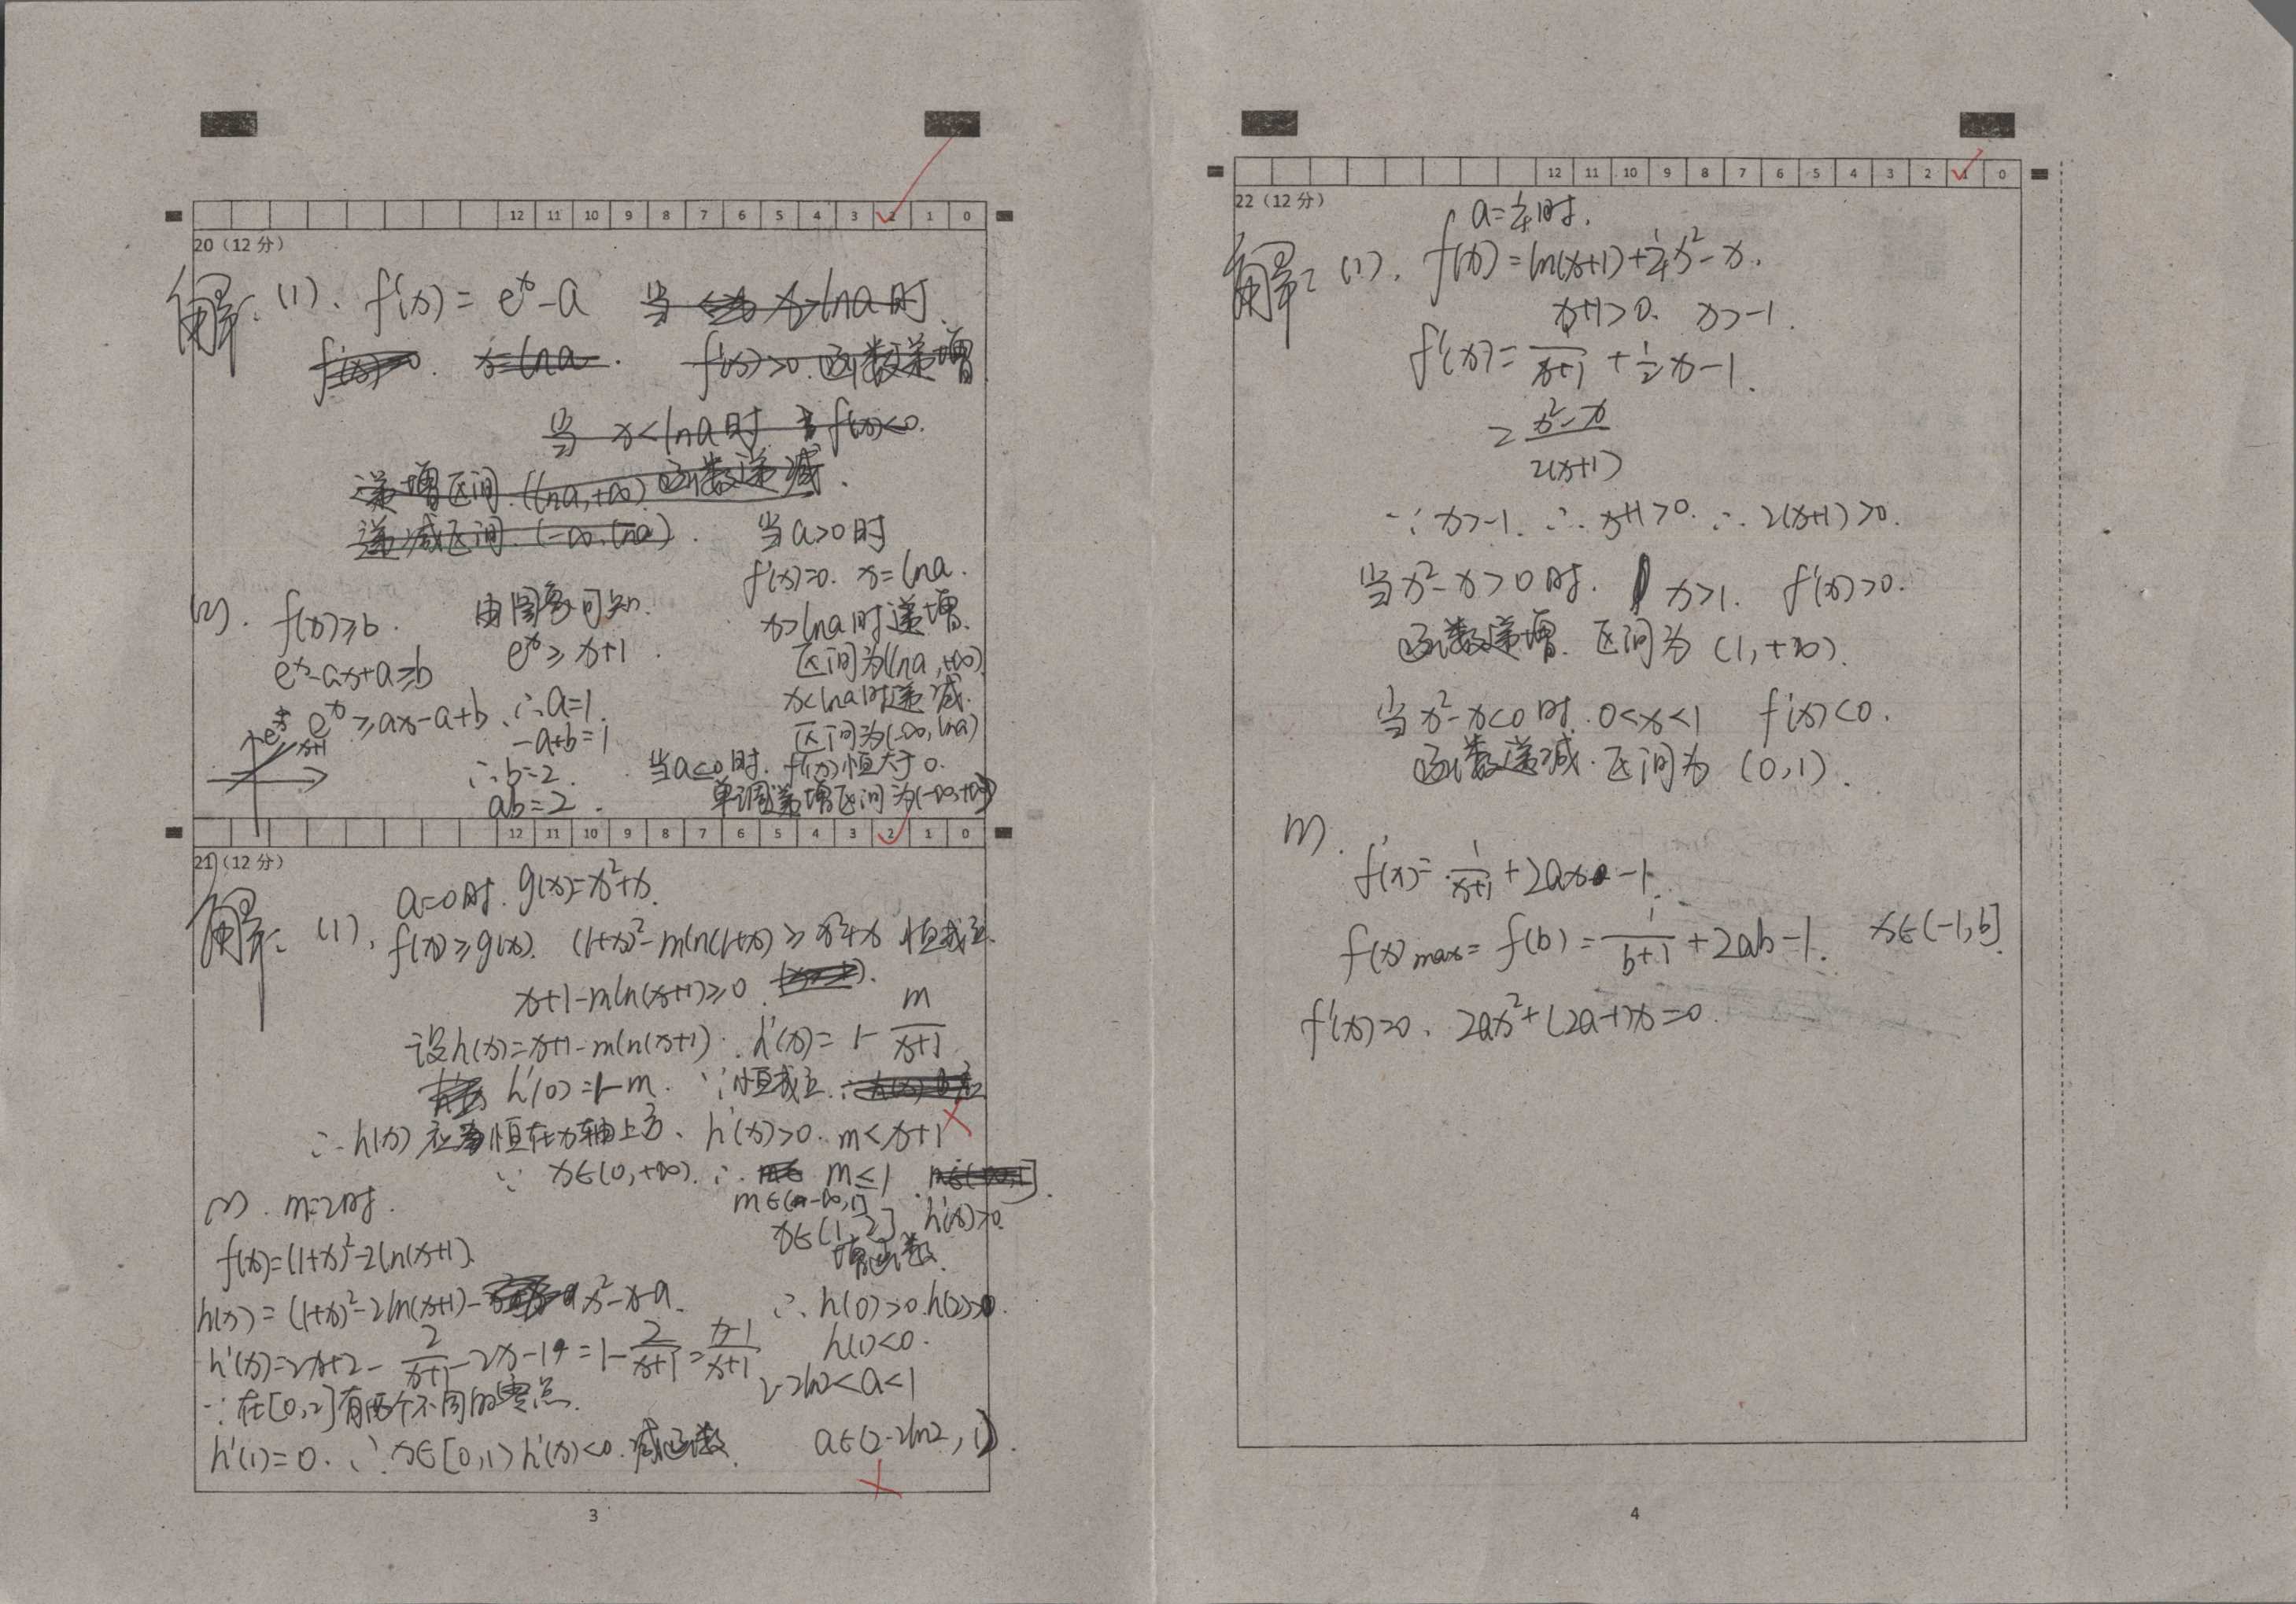 12 11 10 9 8 7 6 5 4 3 2 1 0
20（12分）
解: (1). f'(x) = e^x - a 当 x>lna时
f'(x)=0. x=lna. f'(x)>0 函数递增
当 x<lna时 f'(x)<0.
递增区间.(lna,+∞) 函数递减.
递减区间.(-∞,lna). 当a>0时
f'(x)=0. x=lna.
x>lna时递增.
区间为(lna,+∞)
x<lna时递减.
区间为(-∞,lna)
当a≤0时. f'(x)恒大于0.
单调递增区间为(-∞,+∞)
(2). f(x)≥b.
e^x-ax+a≥b
e^x≥ax-a+b.
e^x
x+1
由图象可知.
e^x≥x+1.
∴a=1.
-a+b=1
∴b=2.
ab=2.
12 11 10 9 8 7 6 5 4 3 2 1 0
21（12分）
解: (1). a=0时. g(x)=x²+x.
f(x)≥g(x). (1+x)²-mln(1+x)≥x²+x 恒成立.
x+1-mln(x+1)≥0.
设h(x)=x+1-mln(x+1). h'(x)=1-m/(x+1)
h'(0)=1-m. ∵恒成立
∴h(x)应当恒在x轴上方、h'(x)>0. m<x+1
∵ x∈(0,+∞). ∴ m≤1
m∈(-∞,1]
(2). m=2时.
f(x)=(1+x)²-2ln(x+1).
h(x)=(1+x)²-2ln(x+1)-x²-x-a.
h'(x)=2x+2-2/(x+1)-2x-1=1-2/(x+1)=(x-1)/(x+1)
∵在[0,2]有两个不同的零点.
h'(1)=0. ∴x∈[0,1) h'(x)<0. 减函数.
x∈(1,2] h'(x)>0.
增函数.
∴h(0)>0.h(2)>0.
h(1)<0.
2-2ln2<a<1
a∈(2-2ln2,1).
3
12 11 10 9 8 7 6 5 4 3 2 1 0
22（12分）
a=1/4时.
解: (1). f(x)=ln(x+1)+1/4x²-x.
x+1>0. x>-1.
f'(x)=1/(x+1)+1/2x-1.
=(x²-x)/(2(x+1))
∵x>-1. ∴x+1>0. ∴2(x+1)>0.
当x²-x>0时. x>1. f'(x)>0.
函数递增. 区间为(1,+∞).
当x²-x<0时.0<x<1 f'(x)<0.
函数递减.区间为(0,1).
(2).
f'(x)=1/(x+1)+2ax-1.
f(x)max=f(b)=1/(b+1)+2ab-1. x∈(-1,b].
f'(x)=0. 2ax²+(2a-1)x=0.
4